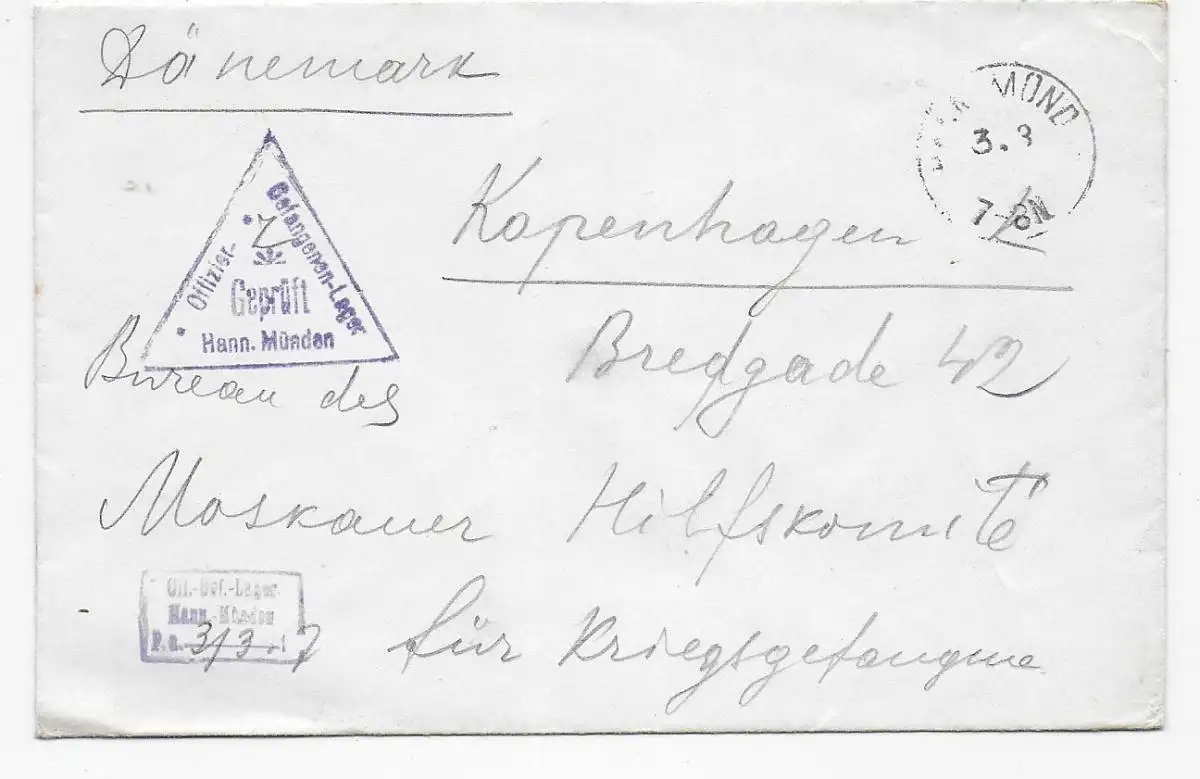 Dänemark
MÜND
3.3
7-8N
Offizier-
Gefangenen-Lager
Geprüft
Hann. Münden
Kopenhagen
Bredgade 42
Bureau des
Moskauer Hilfskomité
Off.-Gef.-Lager
Hann.-Münden
P.a. 3/3.17
für Kriegsgefangne